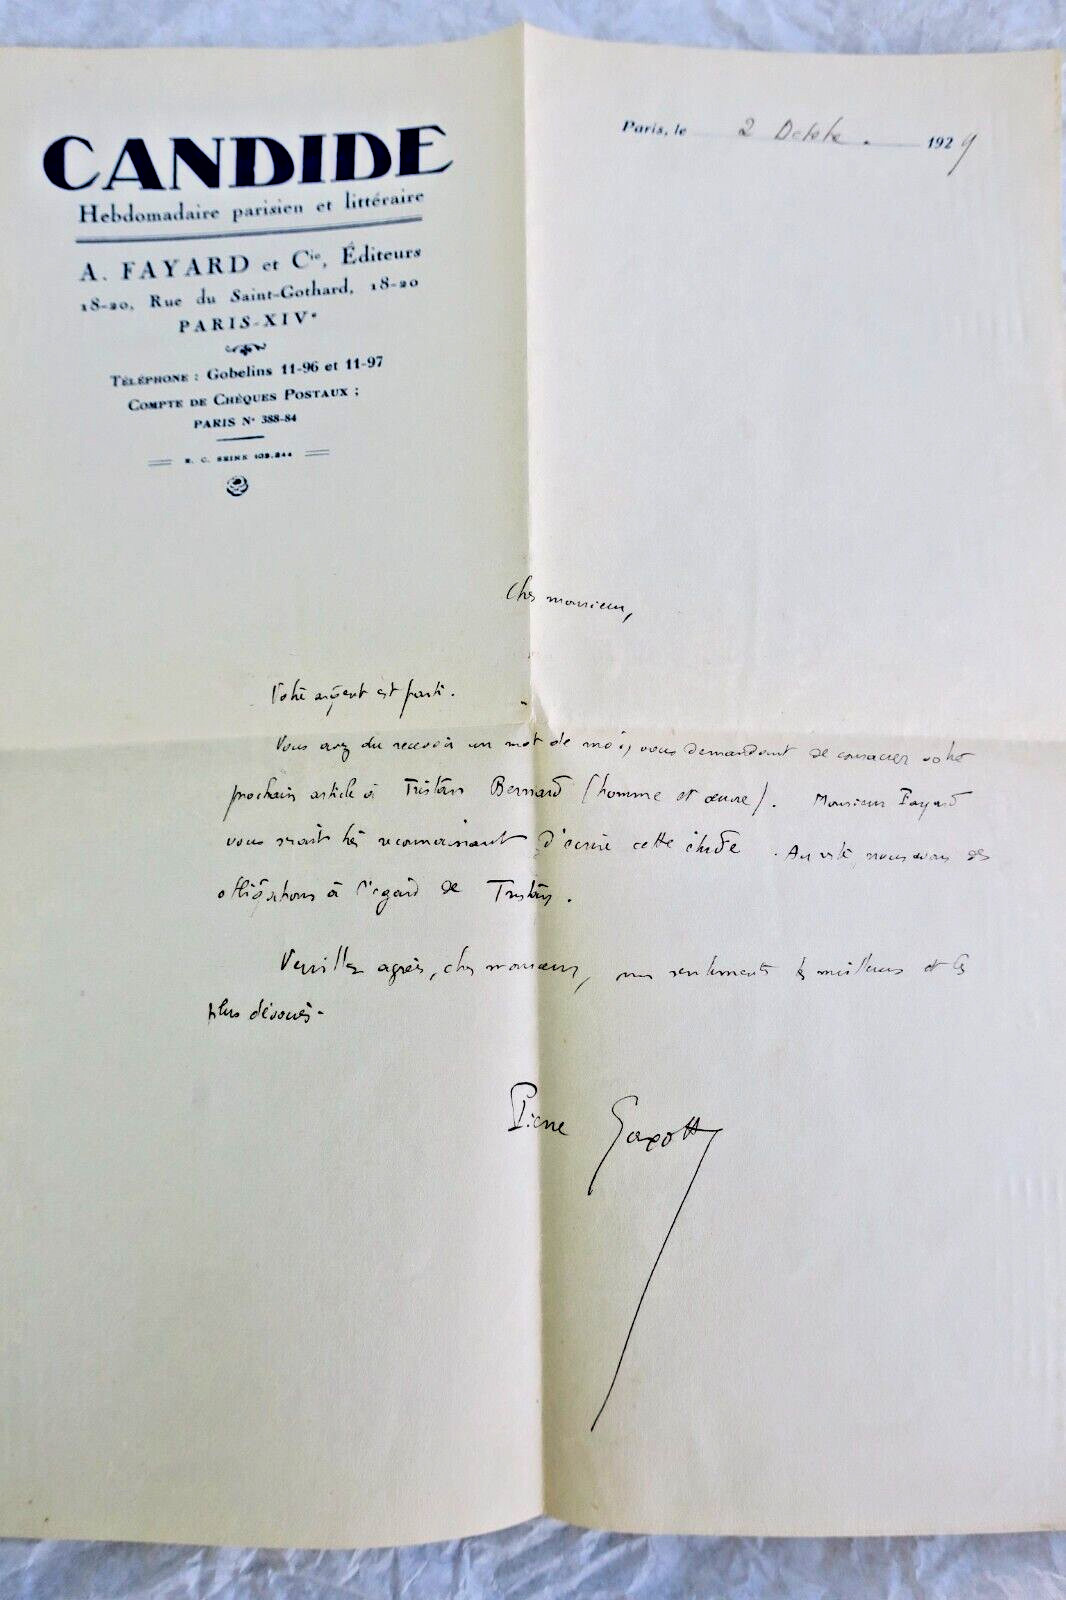 CANDIDE
Hebdomadaire parisien et littéraire
A. FAYARD et Cie, Éditeurs
18-20, Rue du Saint-Gothard, 18-20
PARIS-XIVe
TÉLÉPHONE : Gobelins 11-96 et 11-97
COMPTE DE CHÈQUES POSTAUX ;
PARIS No 388-84
R. C. SEINE 103.244
Paris, le 2 Octobre. 1929
Cher monsieur,
Votre argent est parti.
Vous avez du recevoir un mot de moi, vous demandant de consacrer votre
prochain article à Tristan Bernard (homme et œuvre). Monsieur Fayard
vous serait très reconnaissant d'écrire cette étude. nous avons des
obligations à l'égard de Tristan.
Veuillez agréer, cher monsieur, mes sentiments les meilleurs et les
plus dévoués.
Pierre Gaxotte